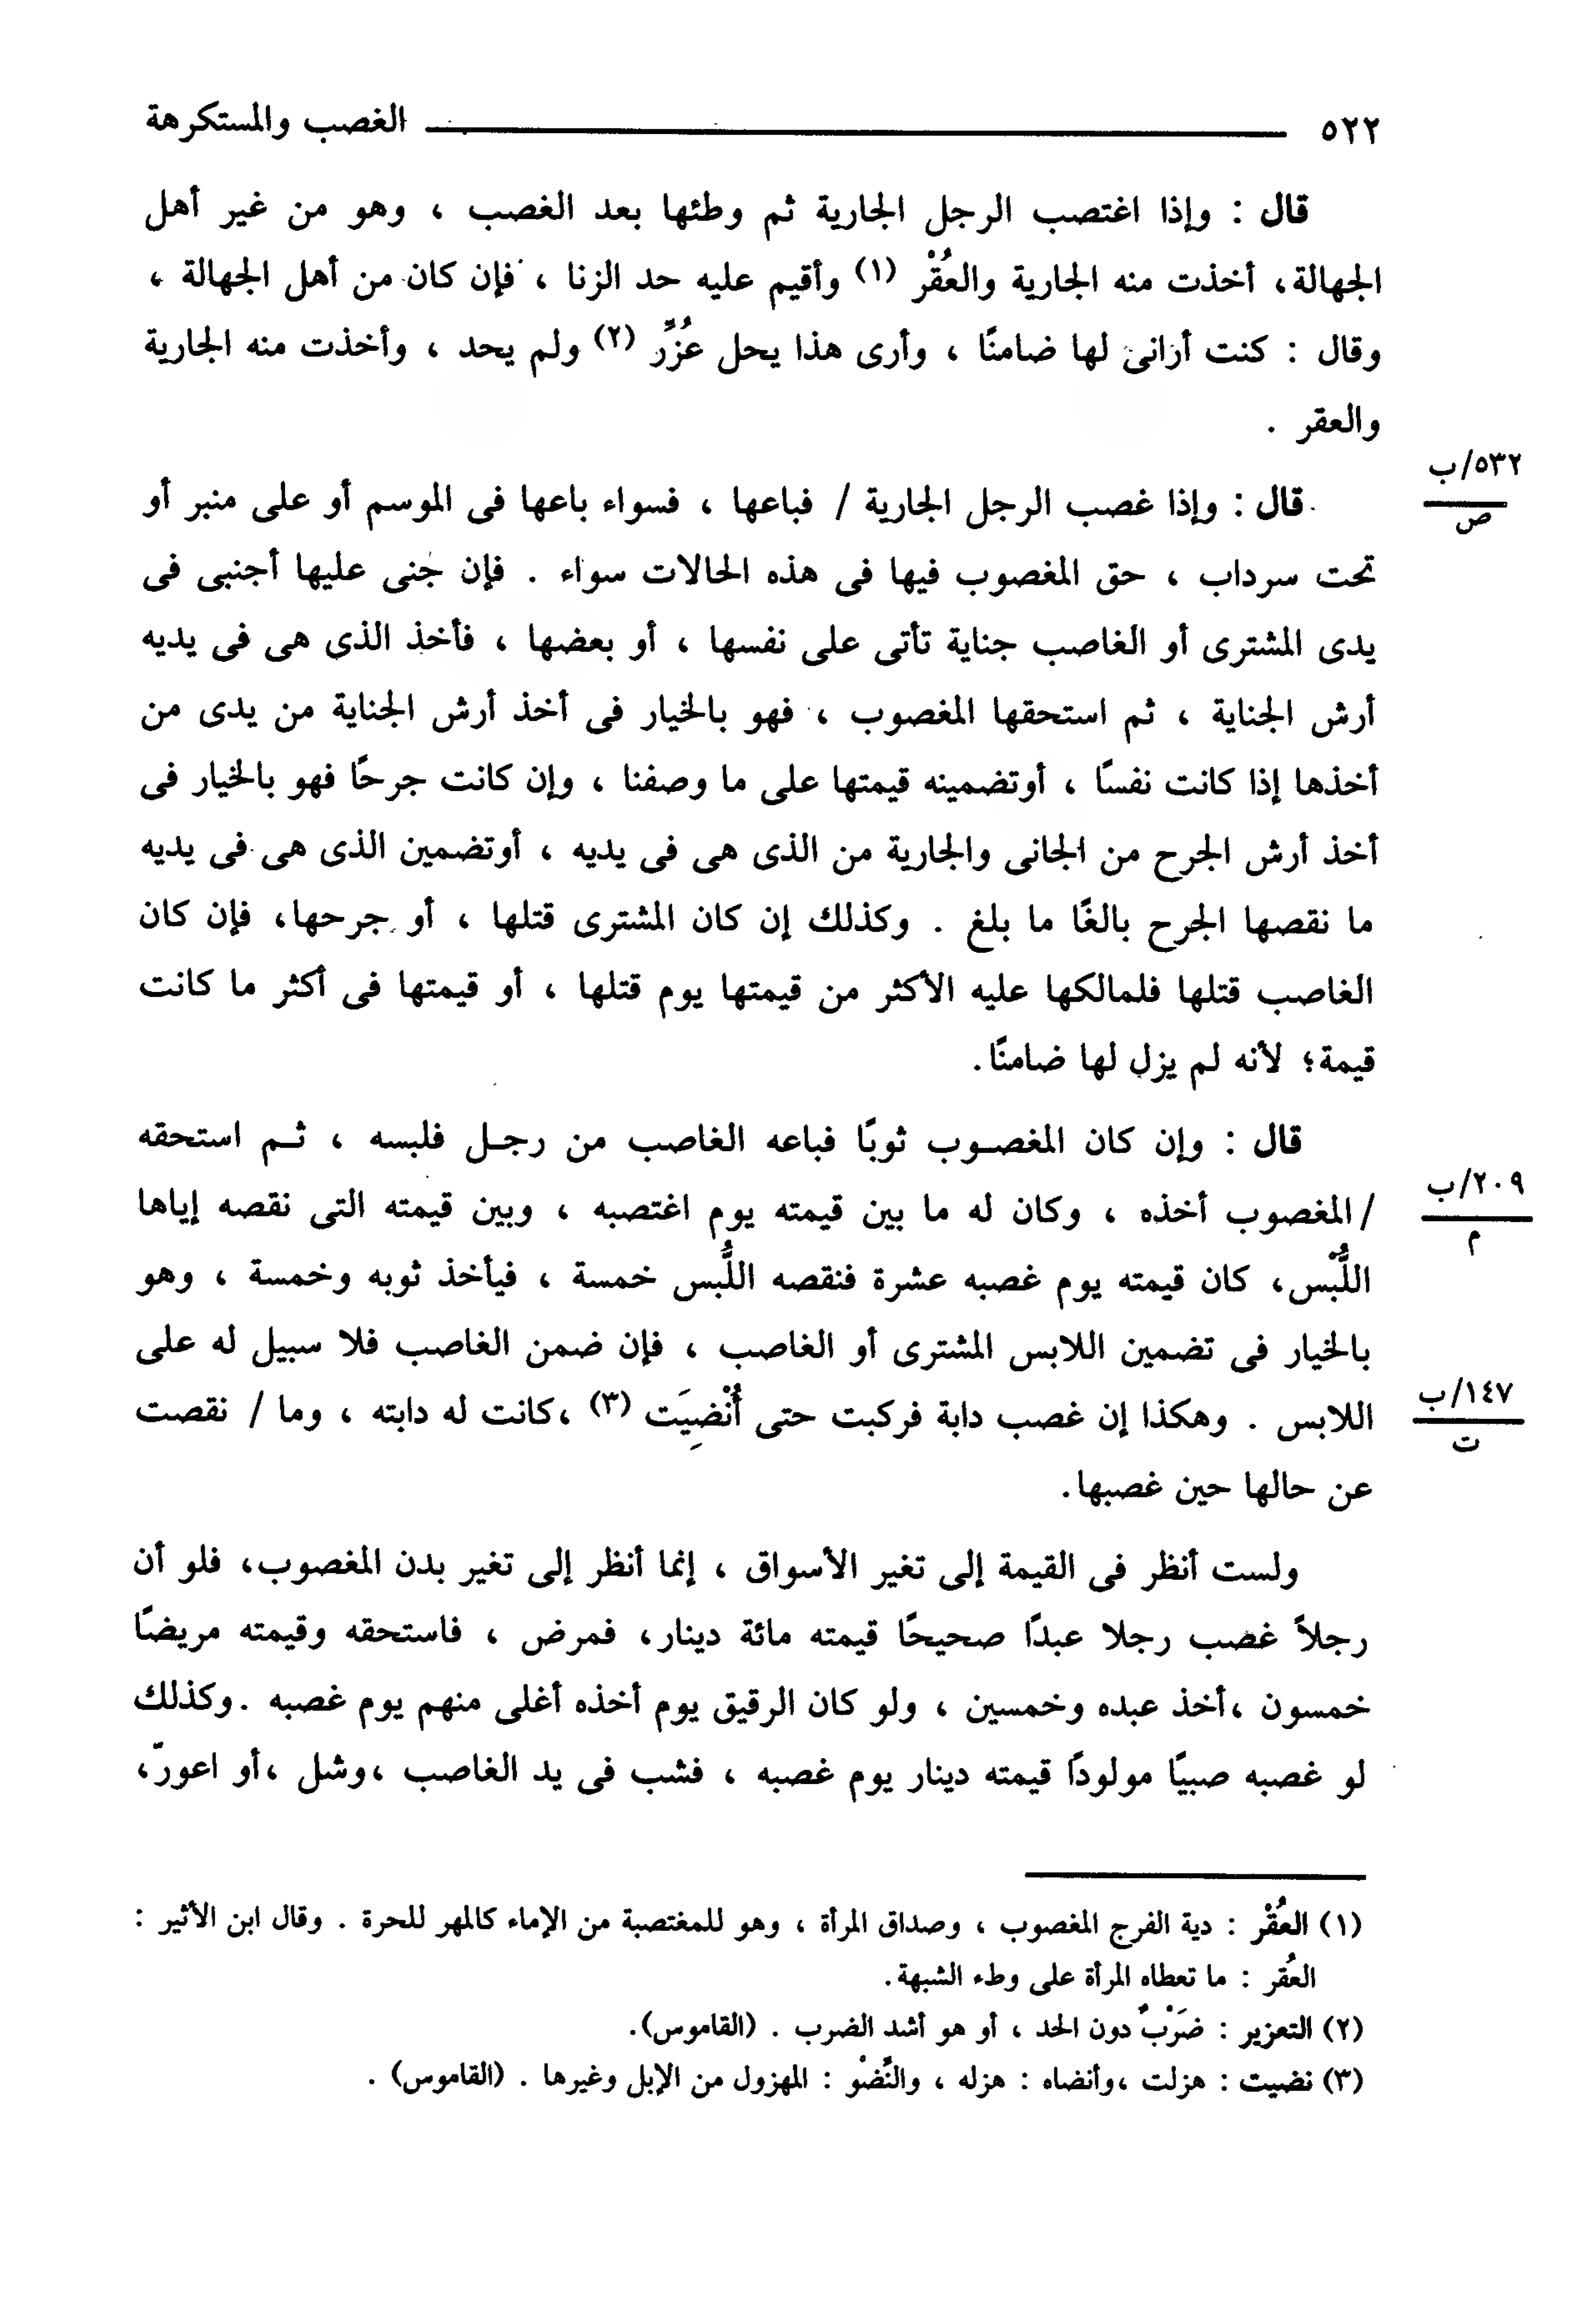 ٥٢٢ الغصب والمستكرهة
قال : وإذا اغتصب الرجل الجارية ثم وطئها بعد الغصب ، وهو من غير أهل
الجهالة، أخذت منه الجارية والعُقْر (١) وأقيم عليه حد الزنا ، فإن كان من أهل الجهالة ،
وقال : كنت أرانى لها ضامنًا ، وأرى هذا يحل عُزِّر (٢) ولم يحد ، وأخذت منه الجارية
والعقر .
٥٣٢/ب
ص
قال : وإذا غصب الرجل الجارية / فباعها ، فسواء باعها فى الموسم أو على منبر أو
تحت سرداب ، حق المغصوب فيها فى هذه الحالات سواء . فإن جنى عليها أجنبى فى
يدى المشترى أو الغاصب جناية تأتى على نفسها ، أو بعضها ، فأخذ الذى هى فى يديه
أرش الجناية ، ثم استحقها المغصوب ، فهو بالخيار فى أخذ أرش الجناية من يدى من
أخذها إذا كانت نفسًا ، أوتضمينه قيمتها على ما وصفنا ، وإن كانت جرحًا فهو بالخيار فى
أخذ أرش الجرح من الجانى والجارية من الذى هى فى يديه ، أوتضمين الذى هى فى يديه
ما نقصها الجرح بالغًا ما بلغ . وكذلك إن كان المشترى قتلها ، أو جرحها، فإن كان
الغاصب قتلها فلمالكها عليه الأكثر من قيمتها يوم قتلها ، أو قيمتها فى أكثر ما كانت
قيمة؛ لأنه لم يزل لها ضامنًا.
قال : وإن كان المغصوب ثوبًا فباعه الغاصب من رجل فلبسه ، ثم استحقه
٢٠٩/ب
م
/ المغصوب أخذه ، وكان له ما بين قيمته يوم اغتصبه ، وبين قيمته التى نقصه إياها
اللُّبْس، كان قيمته يوم غصبه عشرة فنقصه اللُّبس خمسة ، فيأخذ ثوبه وخمسة ، وهو
بالخيار فى تضمين اللابس المشترى أو الغاصب ، فإن ضمن الغاصب فلا سبيل له على
١٤٧/ب
ت
اللابس . وهكذا إن غصب دابة فركبت حتى أُنْضِيَت (٣) ،كانت له دابته ، وما / نقصت
عن حالها حين غصبها.
ولست أنظر فى القيمة إلى تغير الأسواق ، إنما أنظر إلى تغير بدن المغصوب، فلو أن
رجلاً غصب رجلا عبدًا صحيحًا قيمته مائة دينار، فمرض ، فاستحقه وقيمته مريضًا
خمسون ،أخذ عبده وخمسين ، ولو كان الرقيق يوم أخذه أغلى منهم يوم غصبه .وكذلك
لو غصبه صبيًا مولودًا قيمته دينار يوم غصبه ، فشب فى يد الغاصب ،وشل ،أو اعورّ،
(١) العُقْر : دية الفرج المغصوب ، وصداق المرأة ، وهو للمغتصبة من الإماء كالمهر للحرة . وقال ابن الأثير :
العُقر : ما تعطاه المرأة على وطء الشبهة.
(٢) التعزير : ضَرْبٌ دون الحد ، أو هو أشد الضرب . (القاموس).
(٣) نضيت : هزلت ،وأنضاه : هزله ، والنِّضْو : المهزول من الإبل وغيرها . (القاموس) .